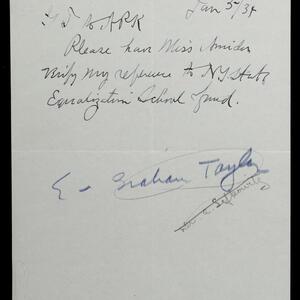 Jan 5/38
to ARK
Please have Miss Amidon
verify my reference to NY State
Equalization School fund.
E - Graham Taylor